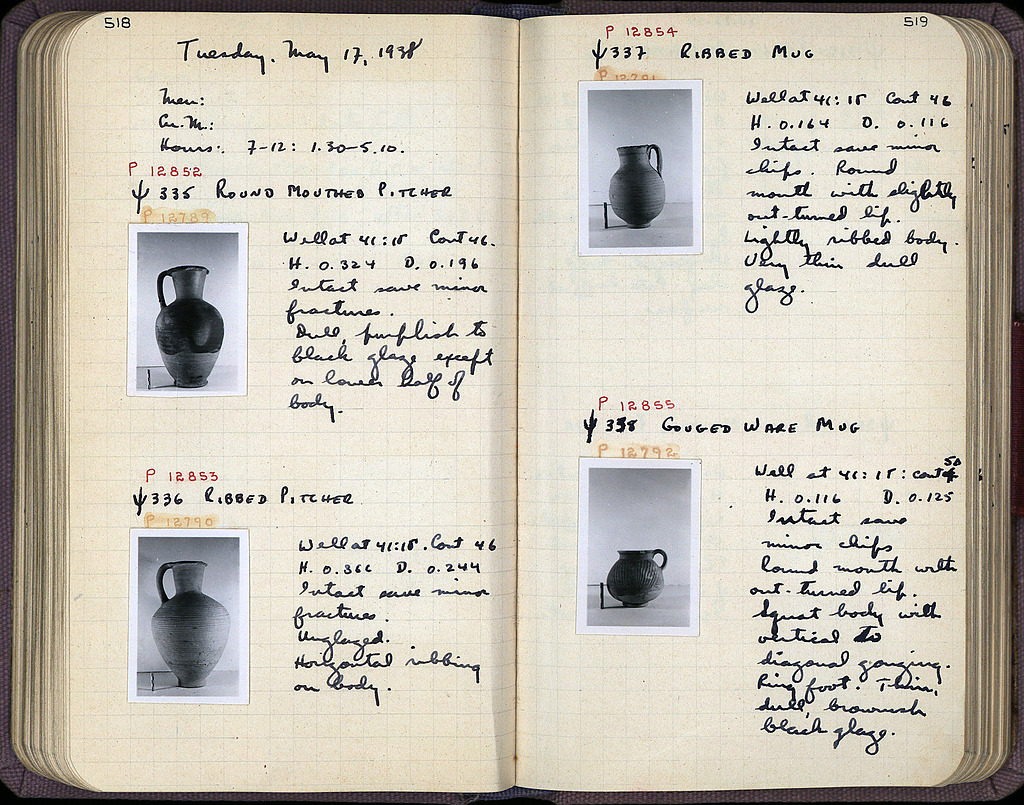 518
Tuesday, May 17, 1938
Men:
Hours: 7-12: 1.30-5.10.
P 12852
ψ 335 ROUND MOUTHED PITCHER
P 12789
Well at 41:15 Cont 46.
H. 0.324 D. 0.196
Intact save minor
fractures.
Dull, purplish to
black glaze except
on lower half of
body.
P 12853
ψ 336 RIBBED PITCHER
P 12790
Well at 41:15. Cont 46
H. 0.366 D. 0.244
Intact save minor
fractures.
Unglazed.
Horizontal ribbing
on body.
519
P 12854
ψ 337 RIBBED MUG
P 12791
Well at 41:15 Cont 46
H. 0.164 D. 0.116
Intact save minor
chips. Round
mouth with slightly
out-turned lip.
Lightly ribbed body.
Very thin dull
glaze.
P 12855
ψ 338 GOUGED WARE MUG
P 12792
Well at 41:15: cont 50
H. 0.116 D. 0.125
Intact save
minor chips
Round mouth with
out-turned lip.
Squat body with
vertical to
diagonal gouging.
Ring foot. Thin,
dull, brownish
black glaze.